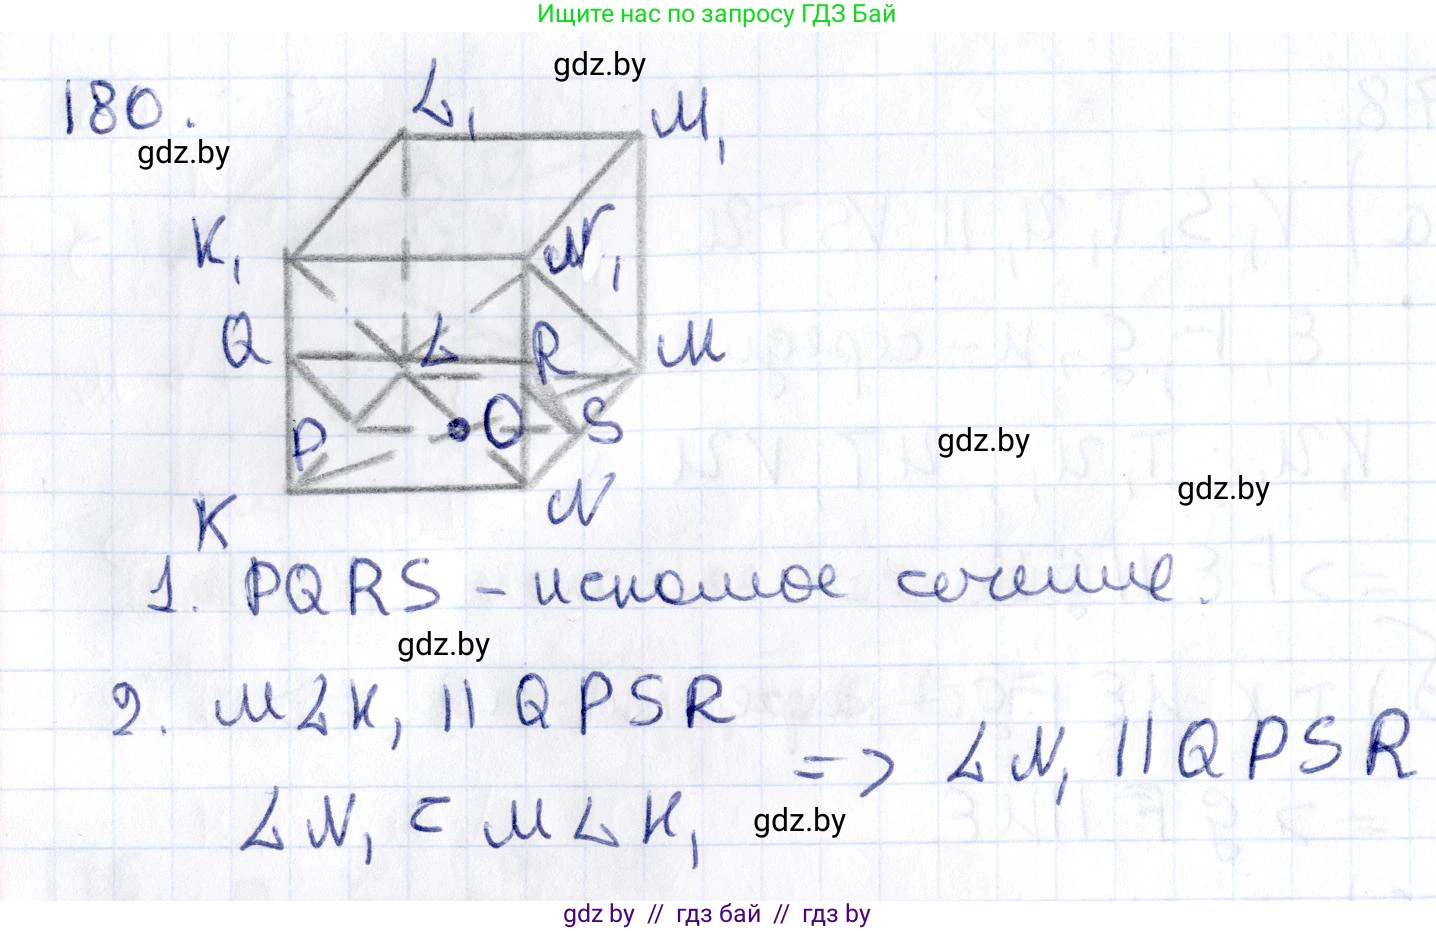 Ищите нас по запросу ГДЗ Бай
gdz.by
180.
gdz.by
L₁
M₁
K₁
N₁
Q
L
R
M
P
O
S
gdz.by
gdz.by
K
N
1. PQRS - искомое сечение.
gdz.by
2. MLK₁ || QPSR
=> LN₁ || QPSR
LN₁ ⊂ MLK₁
gdz.by
gdz by // гдз бай // гдз by